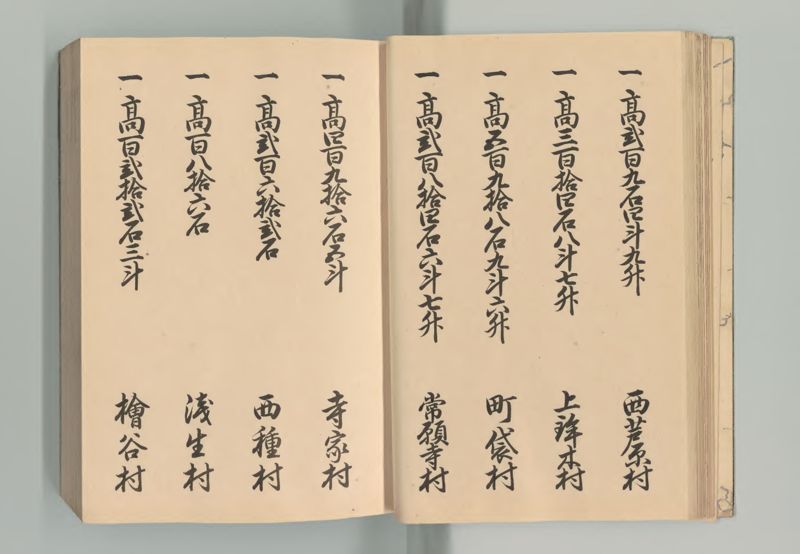 一 高弐百九石四斗九升 西芦原村
一 高三百拾四石八斗七升 上鉾木村
一 高五百九拾八石九斗六升 町袋村
一 高弐百八拾四石六斗七升 常願寺村
一 高四百九拾六石五斗 寺家村
一 高弐百六拾弐石 西種村
一 高百八拾六石 浅生村
一 高百弐拾弐石三斗 檜谷村